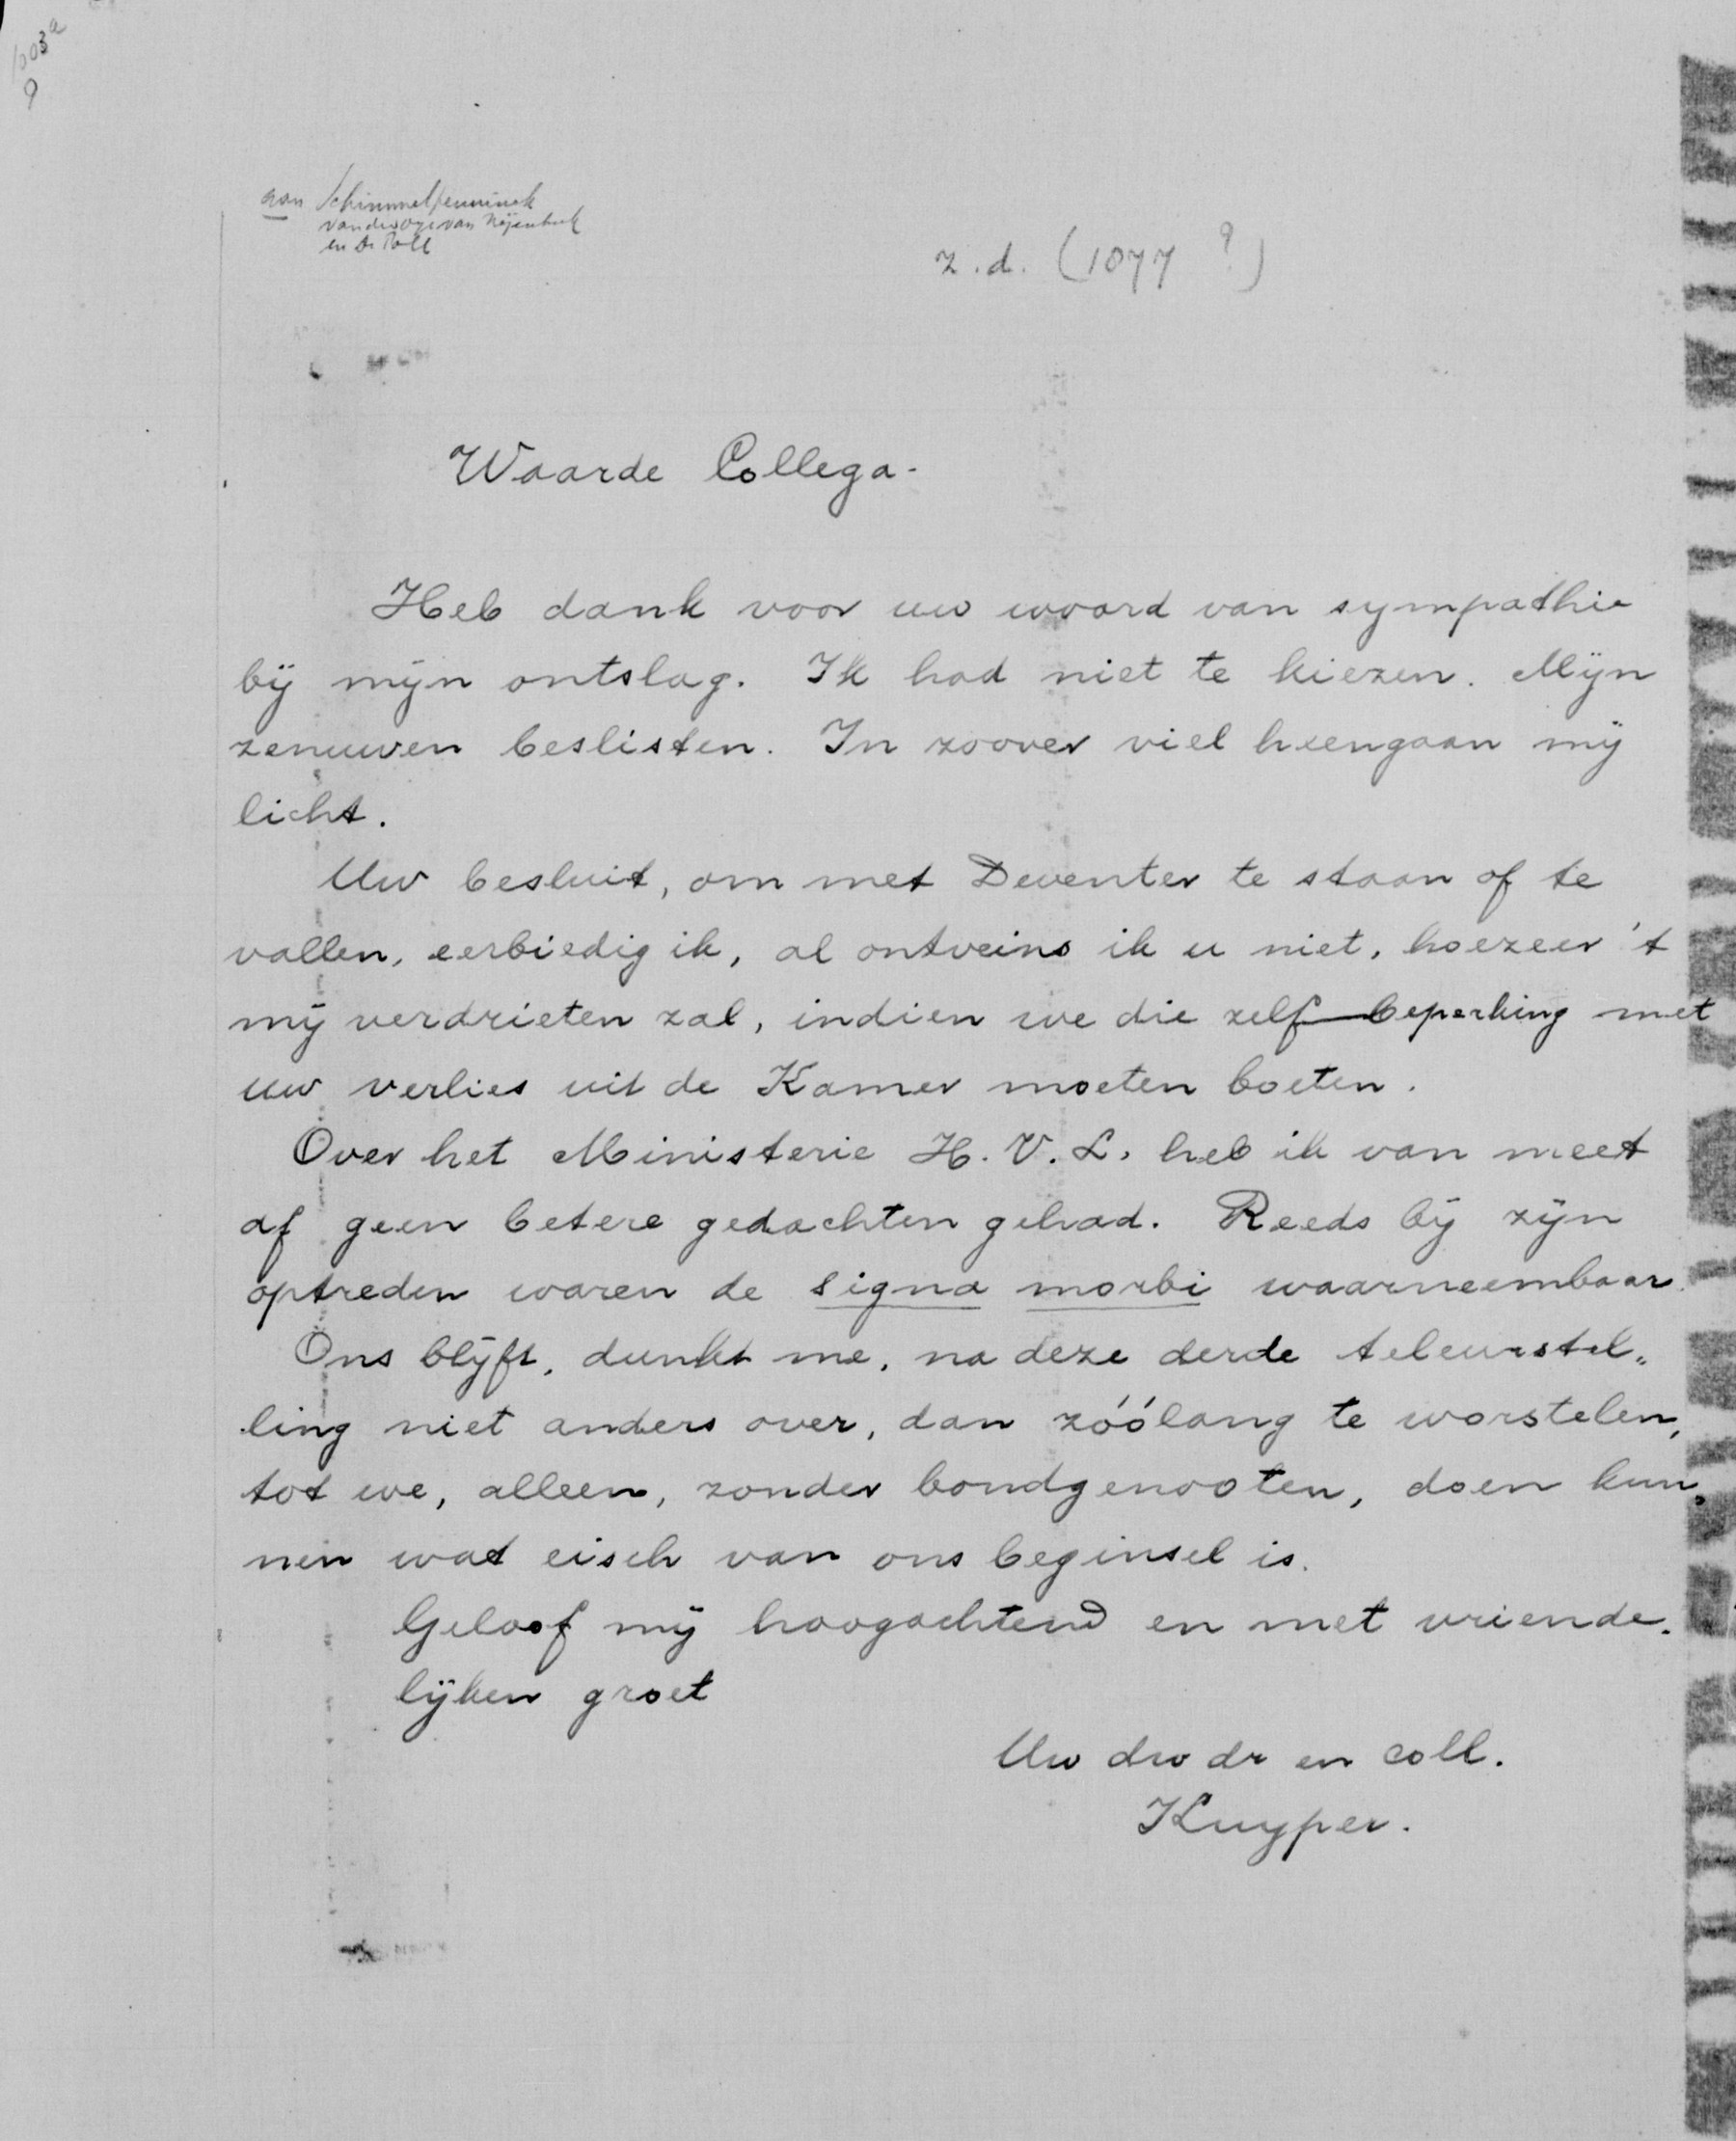 1003a
9
aan Schimmelpenninck
van der Oye van Nijenbeek
en De Poll
z.d. (1877 ?)
Waarde Collega-
Heb dank voor uw woord van sympathie
bij mijn ontslag. Ik had niet te kiezen. Mijn
zenuwen beslisten. In zoover viel heengaan mij
licht.
Uw besluit, om met Deventer te staan of te
vallen, eerbiedig ik, al ontveins ik u niet, hoezeer 't
mij verdrieten zal, indien we die zelf-beperking met
uw verlies uit de Kamer moeten boeten.
Over het Ministerie H. V. L. heb ik van meet
af geen betere gedachten gehad. Reeds bij zijn
optreden waren de signa morbi waarneembaar.
Ons blijft, dunkt me, na deze derde teleurstel„
ling niet anders over, dan zóólang te worstelen,
tot we, alleen, zonder bondgenooten, doen kun„
nen wat eisch van ons beginsel is.
Geloof mij hoogachtend en met vriende.
lijken groet
Uw dw dr en coll.
Kuyper.